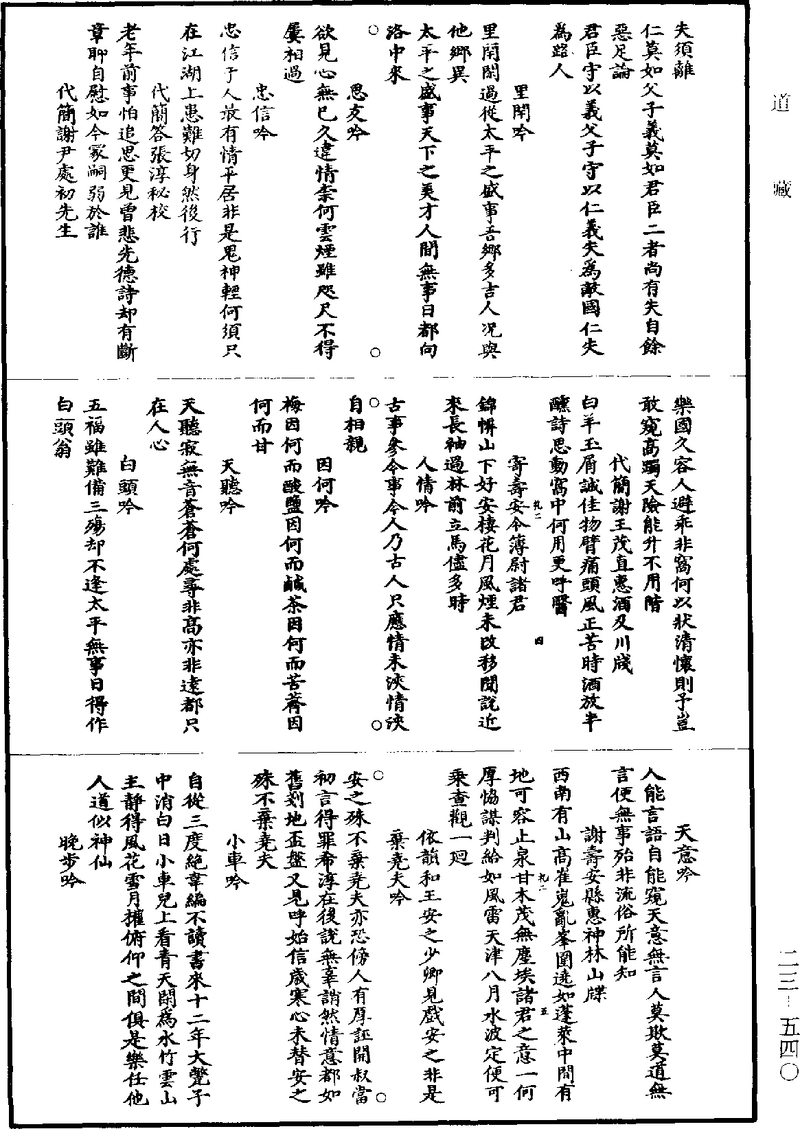 道藏
夫須離
仁莫如父子義莫如君臣二者尚有失自餘
惡足論
君臣守以義父子守以仁義失爲敵國仁失
爲路人
里閈吟
里閈閑過從太平之盛事吾鄉多吉人況與
他鄉異
太平之盛事天下之美才人間無事日都向
洛中來
思友吟
欲見心無已久違情柰何雲煙雖咫尺不得
屢相過
忠信吟
忠信于人最有情平居非是鬼神輕何須只
在江湖上患難切身然後行
代簡答張淳秘校
老年前事怕追思更見曾悲先德詩却有斷
章聊自慰如今冢嗣弱於誰
代簡謝尹處初先生
樂國久容人避乖非窩何以狀清懷則予豈
敢窺高躅天險能升不用階
代簡謝王茂直惠酒及川牋
白羊玉屑誠佳物臂痛頭風正苦時酒放半
醺詩思動窩中何用更呼醫
寄壽安令簿尉諸君
錦幈山下好安棲花月風煙未改移聞說近
來長袖過林前立馬儘多時
人情吟
古事參今事今人乃古人只應情未浹情浹
自相親
因何吟
梅因何而酸鹽因何而鹹茶因何而苦薺因
何而甘
天聽吟
天聽寂無音蒼蒼何處尋非高亦非遠都只
在人心
白頭吟
五福雖難備三殤却不逢太平無事日得作
白頭翁
天意吟
人能言語自能窺天意無言人莫欺莫道無
言便無事殆非流俗所能知
謝壽安縣惠神林山牒
西南有山高崔嵬亂峯圍遶如蓬萊中間有
地可容止泉甘木茂無塵埃諸君之意一何
厚恊謀判給如風雷天津八月水波定便可
乘查觀一迴
依韻和王安之少卿見戲安之非是
棄堯夫吟
安之殊不棄堯夫亦恐傍人有厚誣開叔當
初言得罪希淳在後說無辜謂然情意都如
舊剗地盃盤又見呼始信歲寒心未替安之
殊不棄堯夫
小車吟
自從三度絶韋編不讀書來十二年大甕子
中消白日小車兒上看青天閑爲水竹雲山
主靜得風花雪月權俯仰之間俱是樂任他
人道似神仙
晚步吟
二三-五四〇